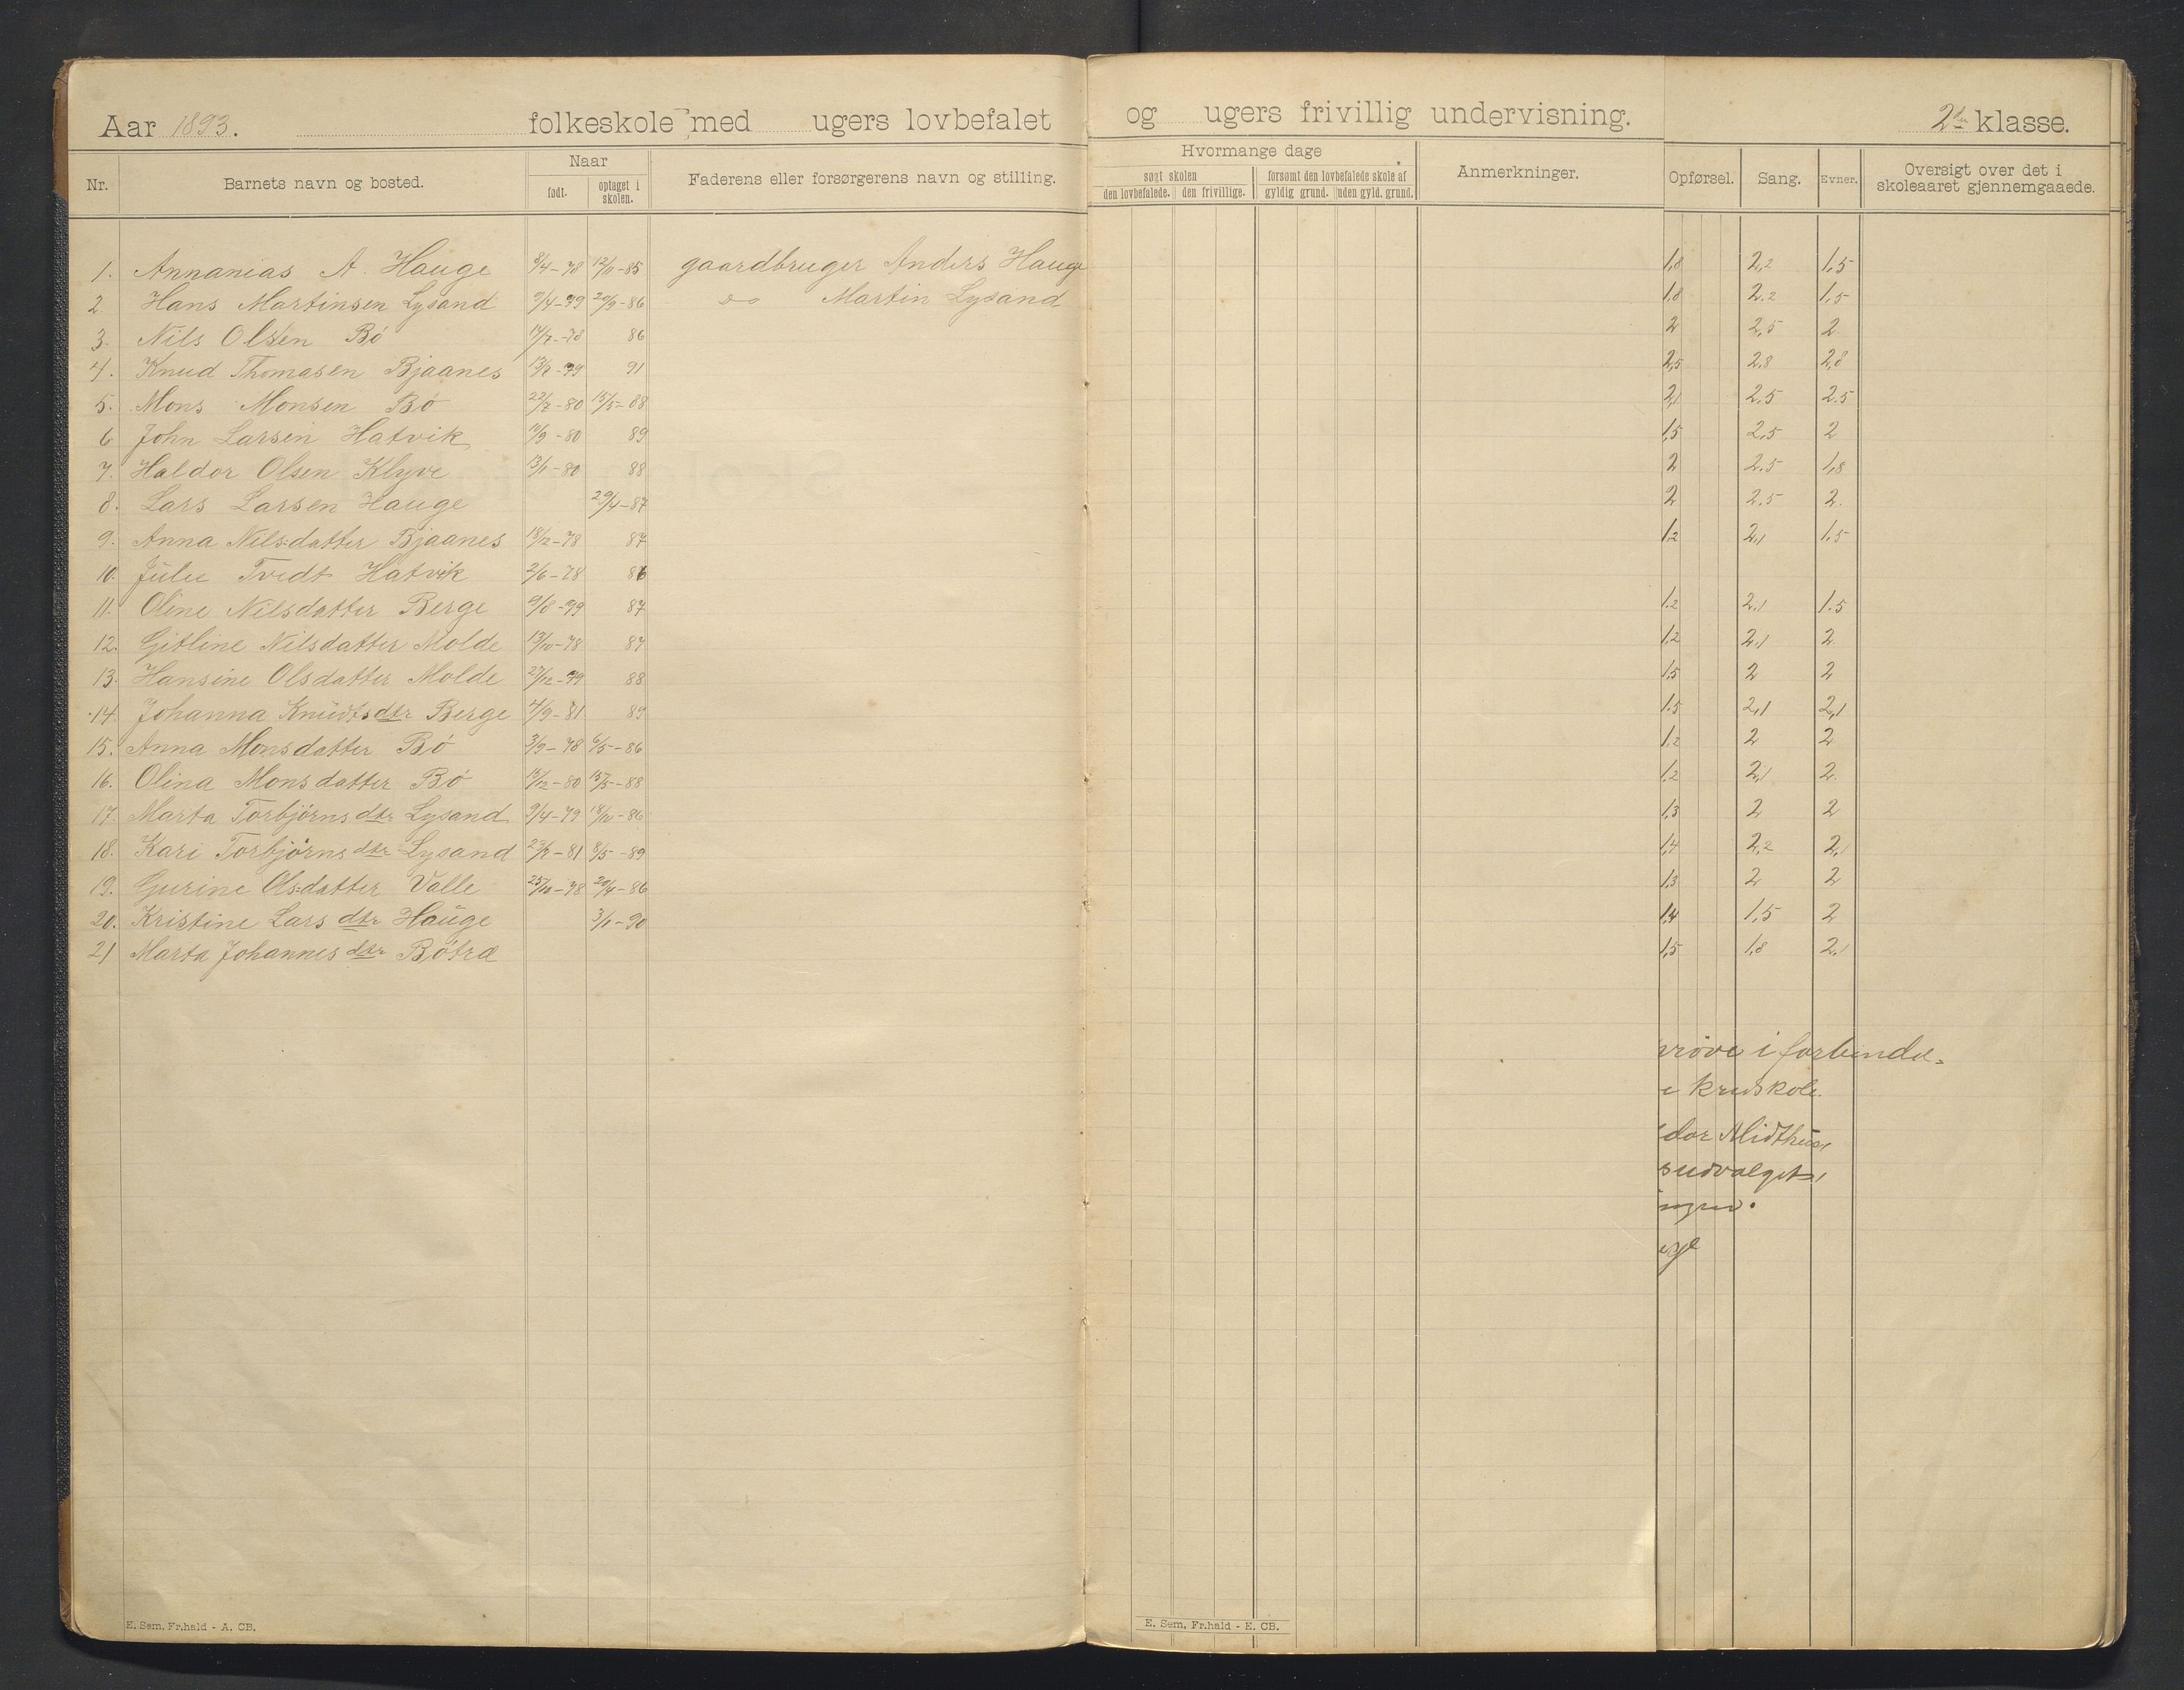 Aar 1893. folkeskole med ugers lovbefalet og ugers frivillig undervisning. 2den klasse.
Nr. Barnets navn og bosted. Naar født. optaget i skolen. Faderens eller forsørgerens navn og stilling. Hvormange dage søgt skolen den lovbefalede. den frivillige. forsømt den lovbefalede skole af gyldig grund. uden gyld. grund. Anmerkninger. Opførsel. Sang. Evner. Oversigt over det i skoleaaret gjennemgaaede.
1. Annanias A. Hauge 8/4-78 12/11-85 gaardbruger Anders Hauge 1,8 2,2 1,5
2 Hans Martinsen Lysand 9/4-79 20/9-86 do Martin Lysand 1,8 2.2 1,5
3. Nils Olsen Bö 14/7-78 86 2 2,5 2
4. Knud Thomasen Bjaanes 13/8-79 91 2,5 2.8 2,8
5. Mons Monsen Bö 22/7-80 15/5-88 2,1 2.5 2.5
6 John Larsen Hatvik 10/9-80 89 1,5 2,5 2
7. Haldor Olsen Klyve 13/1-80 88 2 2.5 1,8
8. Lars Larsen Hauge 29/4-87 2 2.5 2.
9. Anna Nilsdatter Bjaanes 18/12-78 87 1,2 2,1 1.5
10. Julie Tvedt Hatvik 2/6-78 86
11. Oline Nilsdatter Berge 9/8-79 87 1.2 2.1 1.5
12. Gitline Nilsdatter Molde 13/10-78 87 1,2 2.1 2.
13. Hansine Olsdatter Molde 27/12-79 88 1,5 2 2
14. Johanna Knudtsdtr Berge 4/9-81 89 1.5 2,1 2,1
15. Anna Monsdatter Bö 3/9-78 6/5-86 1.2 2 2
16. Olina Monsdatter Bö 15/12-80 15/5-88 1.2 2,1 2.
17. Marta Torbjörnsdtr Lysand 9/4-79 18/10-86 1,3 2 2
18. Kari Torbjörnsdtr Lysand 23/8-81 8/5-89 1,4 2,2 2,1
19. Gurine Olsdatter Valle 25/10-78 29/4-86 1,3 2 2
20. Kristine Larsdtr Hauge 3/11-90 1,4 1,5 2
21 Marta Johannesdtr Bötræ 1,5 1,8 2,1
röve i forbindel=
e kredskole.
dor Midthus,
sudvalget,
ingen.
E. Sem, Fr.hald - A. CB.
E. Sem, Fr.hald - E. CB.